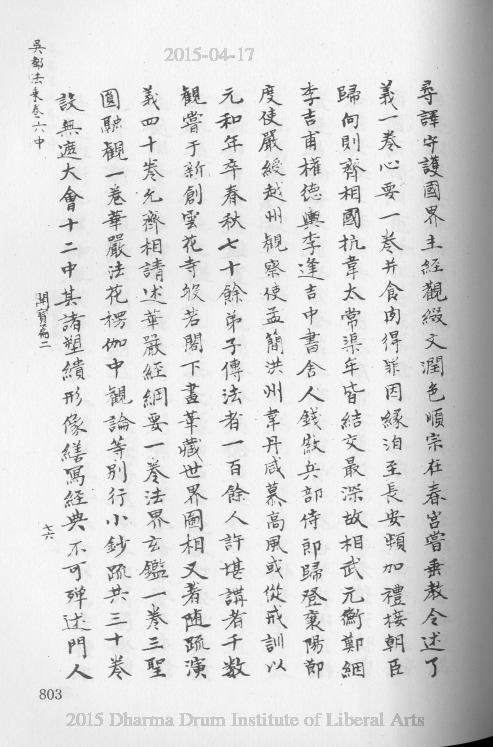 2015-04-17
尋譯守護國界主經觀綴文潤色順宗在春宮嘗垂教令述了
義一卷心要一卷并食肉得罪因緣洎至長安頻加禮接朝臣
歸向則齊相國抗韋太常渠牟皆結交最深故相武元衡鄭絪
李吉甫權德輿李逢吉中書舍人錢徽兵部侍郎歸登襄陽節
度使嚴綬越州觀察使孟簡洪州韋丹咸慕高風或從戒訓以
元和年卒春秋七十餘弟子傳法者一百餘人許堪講者千數
觀嘗于新創雲花寺般若閣下畫華藏世界圖相又著隨疏演
義四十卷允齊相請述華嚴經綱要一卷法界玄鑑一卷三聖
圓融觀一卷華嚴法花楞伽中觀論等別行小鈔疏共三十卷
設無遮大會十二中其諸塑繢形像繕寫經典不可殫述門人
吳都法乘卷六中
開寶篇二
七六
803
2015 Dharma Drum Institute of Liberal Arts